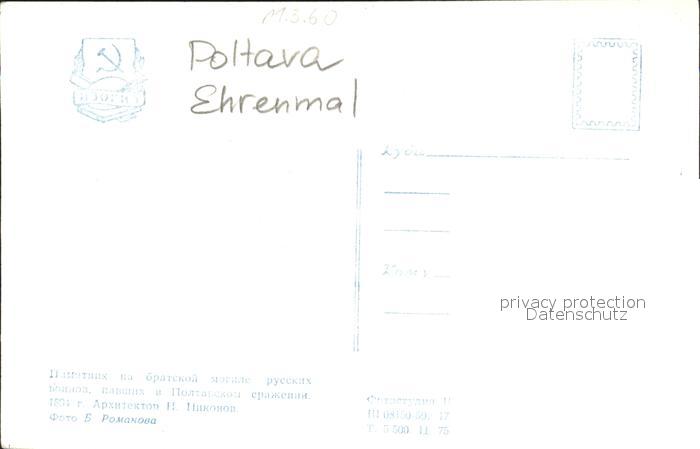 11.3.60
Poltava
Ehrenmal
ИЗОГИЗ
Куда
Кому
privacy protection
Datenschutz
Памятник на братской могиле русских
воинов, павших в Полтавском сражении.
1894 г. Архитектор Н. Никонов.
Фото Б Романова
Фотостудия И
Ш 08150-59. 17
Т. 5 500 Ц. 75